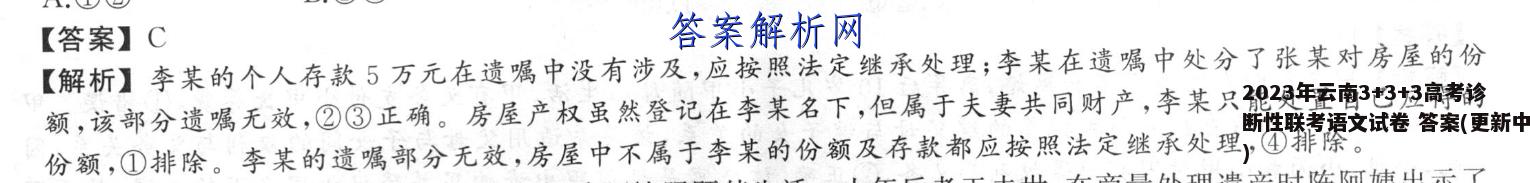 【答案】C
答案解析网
【解析】李某的个人存款5万元在遗嘱中没有涉及,应按照法定继承处理;李某在遗嘱中处分了张某对房屋的份
额,该部分遗嘱无效,②③正确。房屋产权虽然登记在李某名下,但属于夫妻共同财产,李某只
份额,①排除。李某的遗嘱部分无效,房屋中不属于李某的份额及存款都应按照法定继承处理,④排除。
2023年云南3+3+3高考诊
断性联考语文试卷 答案(更新中
)